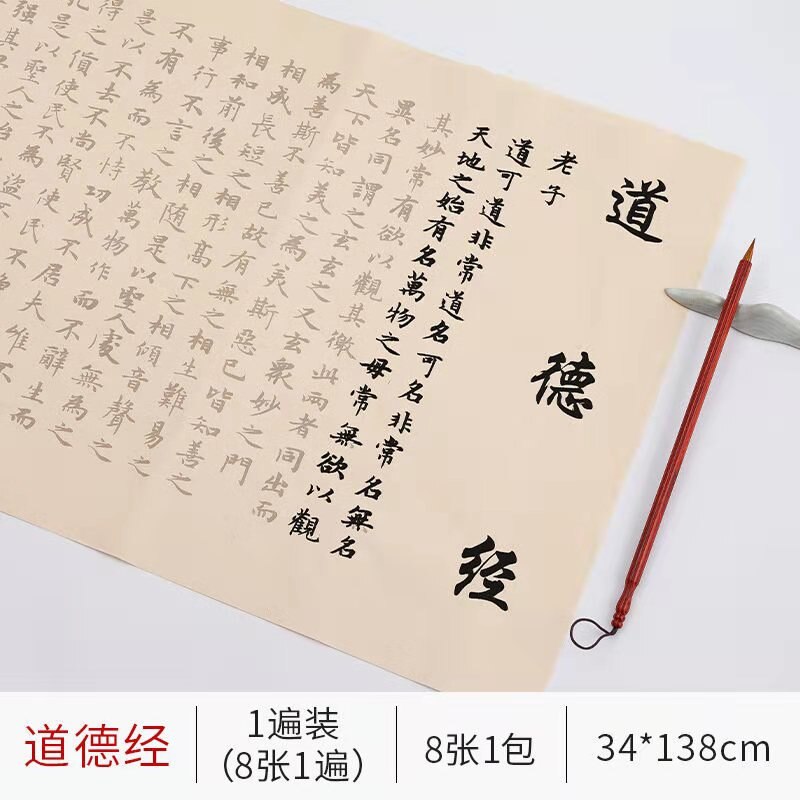 道德经
老子
道可道非常道名可名非常名無名
天地之始有名萬物之母常無欲以觀
其妙常有欲以觀其徼此兩者同出而
異名同謂之玄玄之又玄衆妙之門
天下皆知美之為美斯惡已皆知善之
為善斯不善已故有無之相生難易之
相成長短之相形髙下之相傾音聲之
相和前後之相随是以聖人處無為之
事行不言之教萬物作而不辭生而
不有為而不恃功成不居夫唯不
是以不去不尚賢使民不
得之貨使民不為盗不
是以聖人之治
强其
道德经
1遍装
（8张1遍）
8张1包
34*138cm